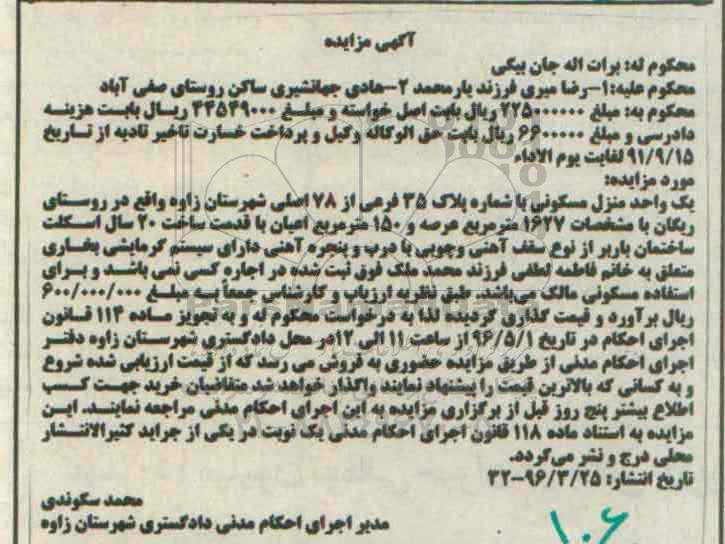 آگهی مزایده
محکوم له: برات اله جان بیکی
محکوم علیه:۱-رضا میری فرزند یارمحمد ۲-هادی جهانشیری ساکن روستای صفی آباد
محکوم به: مبلغ ۲۲۵۰۰۰۰۰۰ ریال بابت اصل خواسته و مبلغ ۴۴۵۴۹۰۰۰ ریال بابت هزینه
دادرسی و مبلغ ۶۶۰۰۰۰۰ ریال بابت حق الوکاله وکیل و پرداخت خسارت تاخیر تادیه از تاریخ
۹۱/۹/۱۵ لغایت یوم الاداء
مورد مزایده:
یک واحد منزل مسکونی با شماره پلاک ۳۵ فرعی از ۷۸ اصلی شهرستان زاوه واقع در روستای
ریگان با مشخصات ۱۶۲۷ مترمربع عرصه و ۱۵۰ مترمربع اعیان با قدمت ساخت ۲۰ سال اسکلت
ساختمان باربر از نوع سقف آهنی وچوبی با درب و پنجره آهنی دارای سیستم گرمایشی بخاری
متعلق به خانم فاطمه لطفی فرزند محمد ملک فوق ثبت شده در اجاره کسی نمی باشد و برای
استفاده مسکونی مالک می‌باشد. طبق نظریه ارزیاب و کارشناس جمعاً به مبلغ ۶۰۰/۰۰۰/۰۰۰
ریال برآورد و قیمت گذاری گردیده لذا به درخواست محکوم له و به تجویز ماده ۱۱۴ قانون
اجرای احکام در تاریخ ۹۶/۵/۱ از ساعت ۱۱ الی ۱۲در محل دادگستری شهرستان زاوه دفتر
اجرای احکام مدنی از طریق مزایده حضوری به فروش می رسد که از قیمت ارزیابی شده شروع
و به کسانی که بالاترین قیمت را پیشنهاد نمایند واگذار خواهد شد متقاضیان خرید جهت کسب
اطلاع بیشتر پنج روز قبل از برگزاری مزایده به این اجرای احکام مدنی مراجعه نمایند. این
مزایده به استناد ماده ۱۱۸ قانون اجرای احکام مدنی یک نوبت در یکی از جراید کثیرالانتشار
محلی درج و نشر می‌گردد.
تاریخ انتشار: ۹۶/۳/۲۵-۳۲
محمد سکوندی
مدیر اجرای احکام مدنی دادگستری شهرستان زاوه
۱۰۶